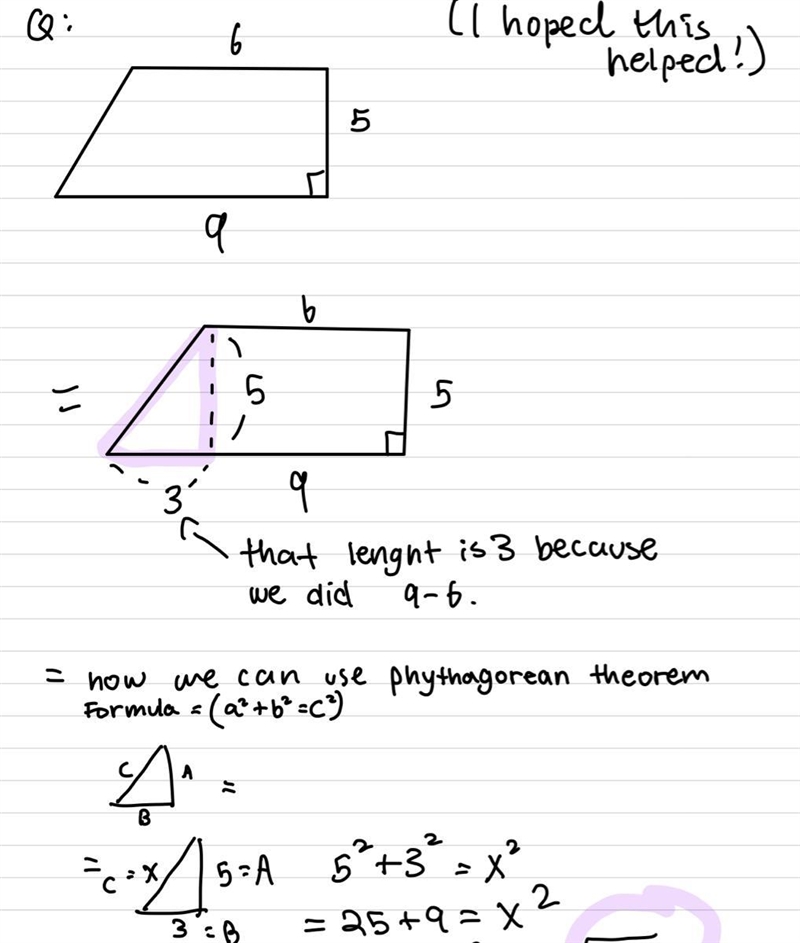 Q:
(I hoped this
helped!)
6
5
9
=
6
5
5
3
9
that lenght is 3 because
we did 9-6.
= now we can use phythagorean theorem
Formula = (a²+b²=c²)
C
A
=
B
=
C = x
5 = A
5²+3² = x²
3 = B
= 25+9 = x²